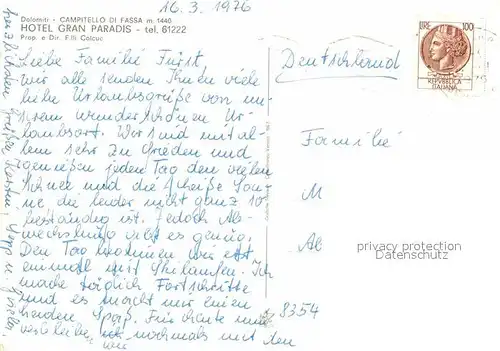 16.3.1976
Dolomiti - CAMPITELLO DI FASSA m. 1440
HOTEL GRAN PARADIS - tel. 61222
Prop. e Dir. F.lli Colcuc
Liebe Familie Fürst,
wir alle senden Ihnen viele
liebe Urlaubsgrüße von un-
serem wunderschönen Ur-
laubsort. Wir sind mit al-
lem sehr zu Frieden und
genießen jeden Tag den vielen
Schnee und die heiße Son-
ne die leider nicht ganz so
beständig ist. Jedoch Ab-
wechslung gibt es genug.
Den Tag beginnen wir erst
einmal mit Skilaufen. Ich
mache täglich Fortschritte
und es macht mir einen
Spaß. Für heute
verbleibe ich nochmals mit den
herzlichsten Grüßen Kersten, Sepp u. Gisela
Deutschland
LIRE 100
REPVBBLICA
ITALIANA
Familie
M
Ab
8354
privacy protection
Datenschutz